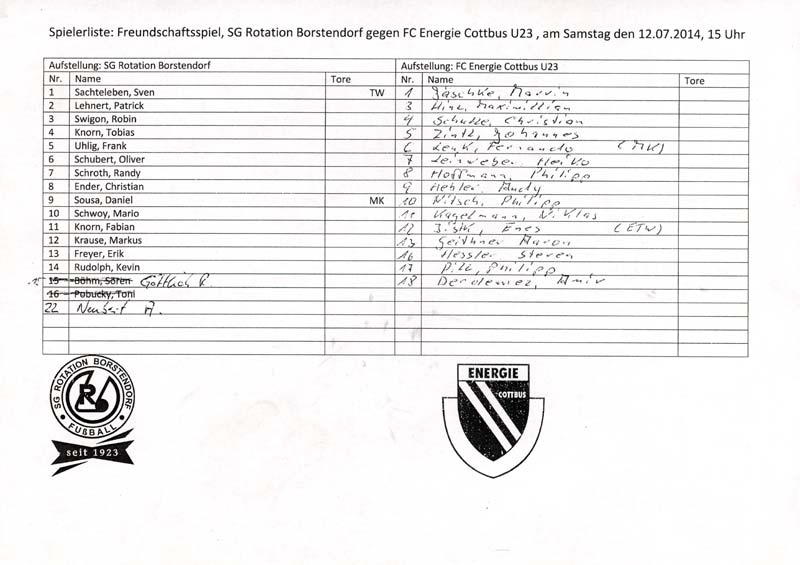 Spielerliste: Freundschaftsspiel, SG Rotation Borstendorf gegen FC Energie Cottbus U23 , am Samstag den 12.07.2014, 15 Uhr
Aufstellung: SG Rotation Borstendorf
Nr. Name Tore
1 Sachteleben, Sven TW
2 Lehnert, Patrick
3 Swigon, Robin
4 Knorn, Tobias
5 Uhlig, Frank
6 Schubert, Oliver
7 Schroth, Randy
8 Ender, Christian
9 Sousa, Daniel MK
10 Schwoy, Mario
11 Knorn, Fabian
12 Krause, Markus
13 Freyer, Erik
14 Rudolph, Kevin
15 15 Böhm, Sören Göttlich R.
16 Pobucky, Toni
22 Neubert A.
Aufstellung: FC Energie Cottbus U23
Nr. Name Tore
1 Jäschke, Marvin
3 Maximilian
4 Schulze, Christian
5 Zintl, Johannes
6 Lenk, Fernando (MK)
7 Leinweber Heiko
8 Hoffmann, Philipp
9 Hebler Andy
10 Nitsch, Philipp
11 Kagelmann, Niklas
12 Enes (ETW)
13 Geithner Maron
16 Hessler Steven
17 Pilz, Philipp
18
SG ROTATION BORSTENDORF
R
FUßBALL
seit 1923
ENERGIE
COTTBUS